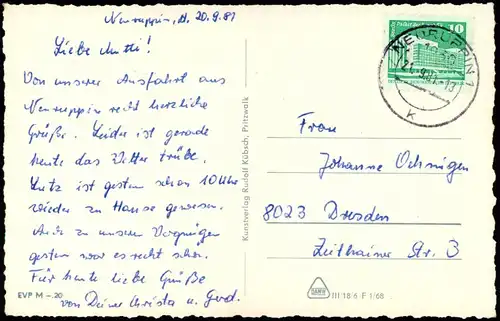 Neuruppin, d. 20.9.81
Liebe Mutti!
Von unserer Ausfahrt aus
Neuruppin recht herzliche
Grüße. Leider ist gerade
heute das Wetter trübe.
Lutz ist gestern schon 10 Uhr
wieder zu Hause gewesen.
Auch zu unserem Vergnügen
gestern war es recht schön.
Für heute liebe Grüße
von Deiner Christa u. Gerd.
EVP M –.20
Kunstverlag Rudolf Kübsch, Pritzwalk
10
NEURUPPIN 1
1950
21.-9.81-13
K
Frau
Johanne
8023 Dresden
Zeithainer Str. 3
III 18/6 F 1/68